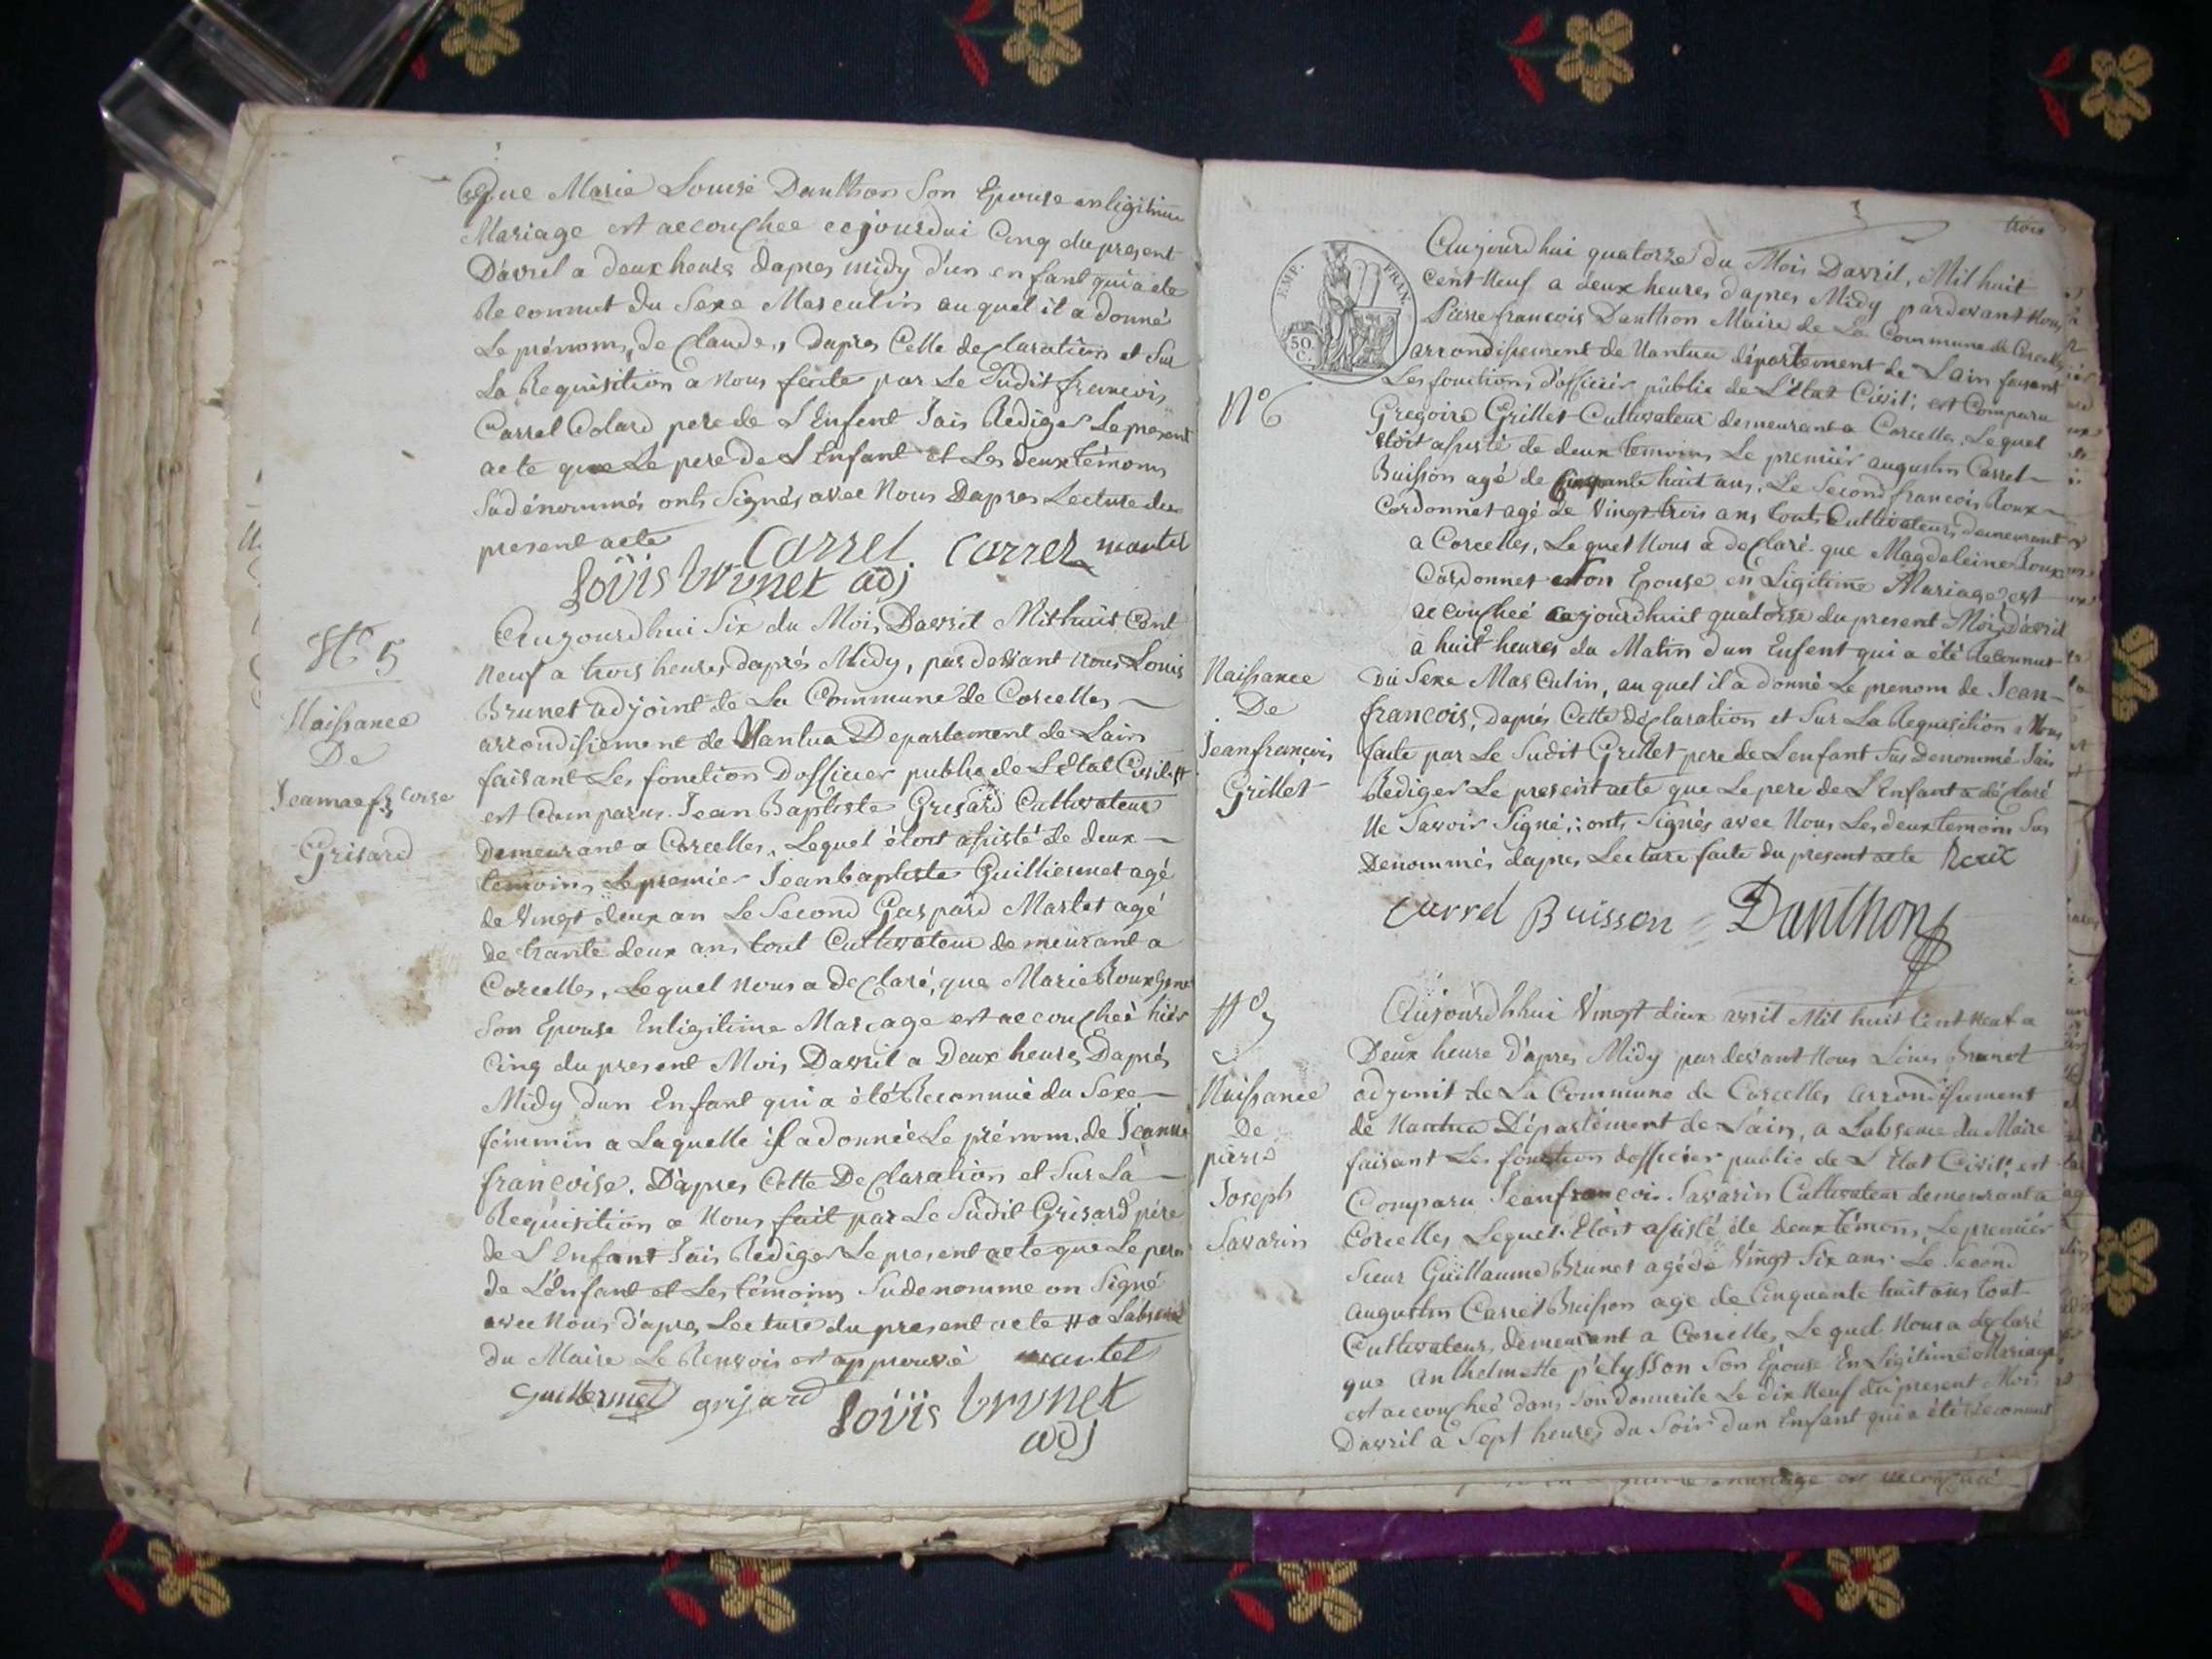 que Marie Louise Danthon Son Epouse en legitime
Mariage est accouchee cejourdui Cinq du present
D'avril a deux heures dapres midy d'un enfant qui a ete
Reconnut du Sexe Masculin auquel il a donné
Le prénom, de Claude, Dapres Cette declaration et Sur
La Requisition a Nous faite par Le Sudit francois
Carrel Colard pere de L'Enfent Jais Rediger Le present
acte que Le pere de L'Enfant et Les deux témoins
Sudénommés onts Signés avec Nous Dapres Lecture du
present acte Carrel Carrel martel
Loüis brunet adj
N° 5
Naissance
De
Jeanne fscoise
Grisard
Aujourdhui Six du Mois Davril Mil huit Cent
Neuf a trois heures daprés Midy, par devant Nous Louis
Brunet adjoint de La Commune de Corcelles
arrondissement de Nantua Departement de Lain
faisant Les fonction Dofficier public de L'état Civil #
est Comparus Jean Baptiste Grisard Cultivateur
Demeurant a Corcelles, Lequel étoit assisté de deux
temoins Le premier Jean baptiste Guilliermet agé
de Vingt deux an Le Second Gaspard Martet agé
de trante deux ans tout Cultivateur demeurant a
Corcelles, Lequel Nous a declaré, que Marie Roux
Son Epouse En ligitime Mariage est accouchée hièr
Cinq du present Mois Davril a Deux heures Daprés
Midy dun Enfant qui a été Reconnue du Sexe
féminin a Laquelle il a donnée Le prénom, de Jeanne
françoise. D'apres Cette Declaration et Sur La
Requisition a Nous fait par Le Sudit Grisard père
de L'Enfant Jais Rediger Le present acte que Le pere
de L'Enfant et Les témoins Sudenomme on Signé
avec Nous d'apres Lecture du present acte # a Labsence
du Maire Le Renvois est approuvé martel
Guillermet grisard Loüis brunet
adj
3 trois
EMP. FRAN.
50 C.
N° 6
Aujourdhui quatorze du Mois Davril, Mil huit
Cent Neuf a deux heures dapres Midy pardevant Nous
Pierre francois Danthon Maire de La Commune de Corcelles
arrondissement de Nantua département de Lain faisant
Les fonctions d'officier public de L'état Civil; est Comparu
Gregoire Grillet Cultivateur demeurant a Corcelles, Lequel
étoit assisté de deux temoins Le premiér augustin Carrel
Buisson agé de Cinquante huit ans, Le Second francois Roux
Cordonnet agé de Vingt trois ans, touts Cultivateurs demeurant
a Corcelles, Lequel Nous a declaré que Magdeleine Roux
Cordonnet Son Epouse en Ligitime Mariage est
accouchée cejourdhuit quatorse du present Mois d'avril
à huit heures du Matin dun Enfent qui a été Reconnut
Naissance
De
Jean françois
Grillet
Du Sexe Masculin, au quel il a donné Le prenom de Jean
francois, Daprés Cette déclaration et Sur La Requisition a Nous
faite par Le Sudit Grillet pere de Lenfant Sus Denommé Jais
Rediger Le present acte que Le pere de L'Enfant a déclaré
Ne Savoir Signé; onts Signés avec Nous Les deux temoins Sus
Denommés dapres Lecture faite du present acte Roux
Carrel Buisson Danthon
N° 7
Naissance
De
pierre
Joseph
Savarin
Aujourdhui Vingt deux avril Mil huit Cent Neuf a
Deux heure d'apres Midy par devant Nous Louis Brunet
adjonit de La Commune de Corcelles arrondissement
de Nantua Département de Lain, a Labsence du Maire
faisant Les fonction dofficier public de L'Etat Civil; est
Comparu Jean francois Savarin Cultivateur demeurant a
Corcelles Lequel Etoit assisté de deux témoins, Le premiér
Sieur Guillaume Brunet agé de Vingt Six ans. Le Second
augustin Carrel Buisson age de Cinquante huit ans tout
Cultivateurs demeurant a Corcelles Le quel Nous a declaré
que Anthelmette pélysson Son Epouse En Legitime Mariage
est accouchée dans Son domicile Le dix Neuf du present Mois
Davril à Sept heures du Soir dun Enfant qui a été Reconnut